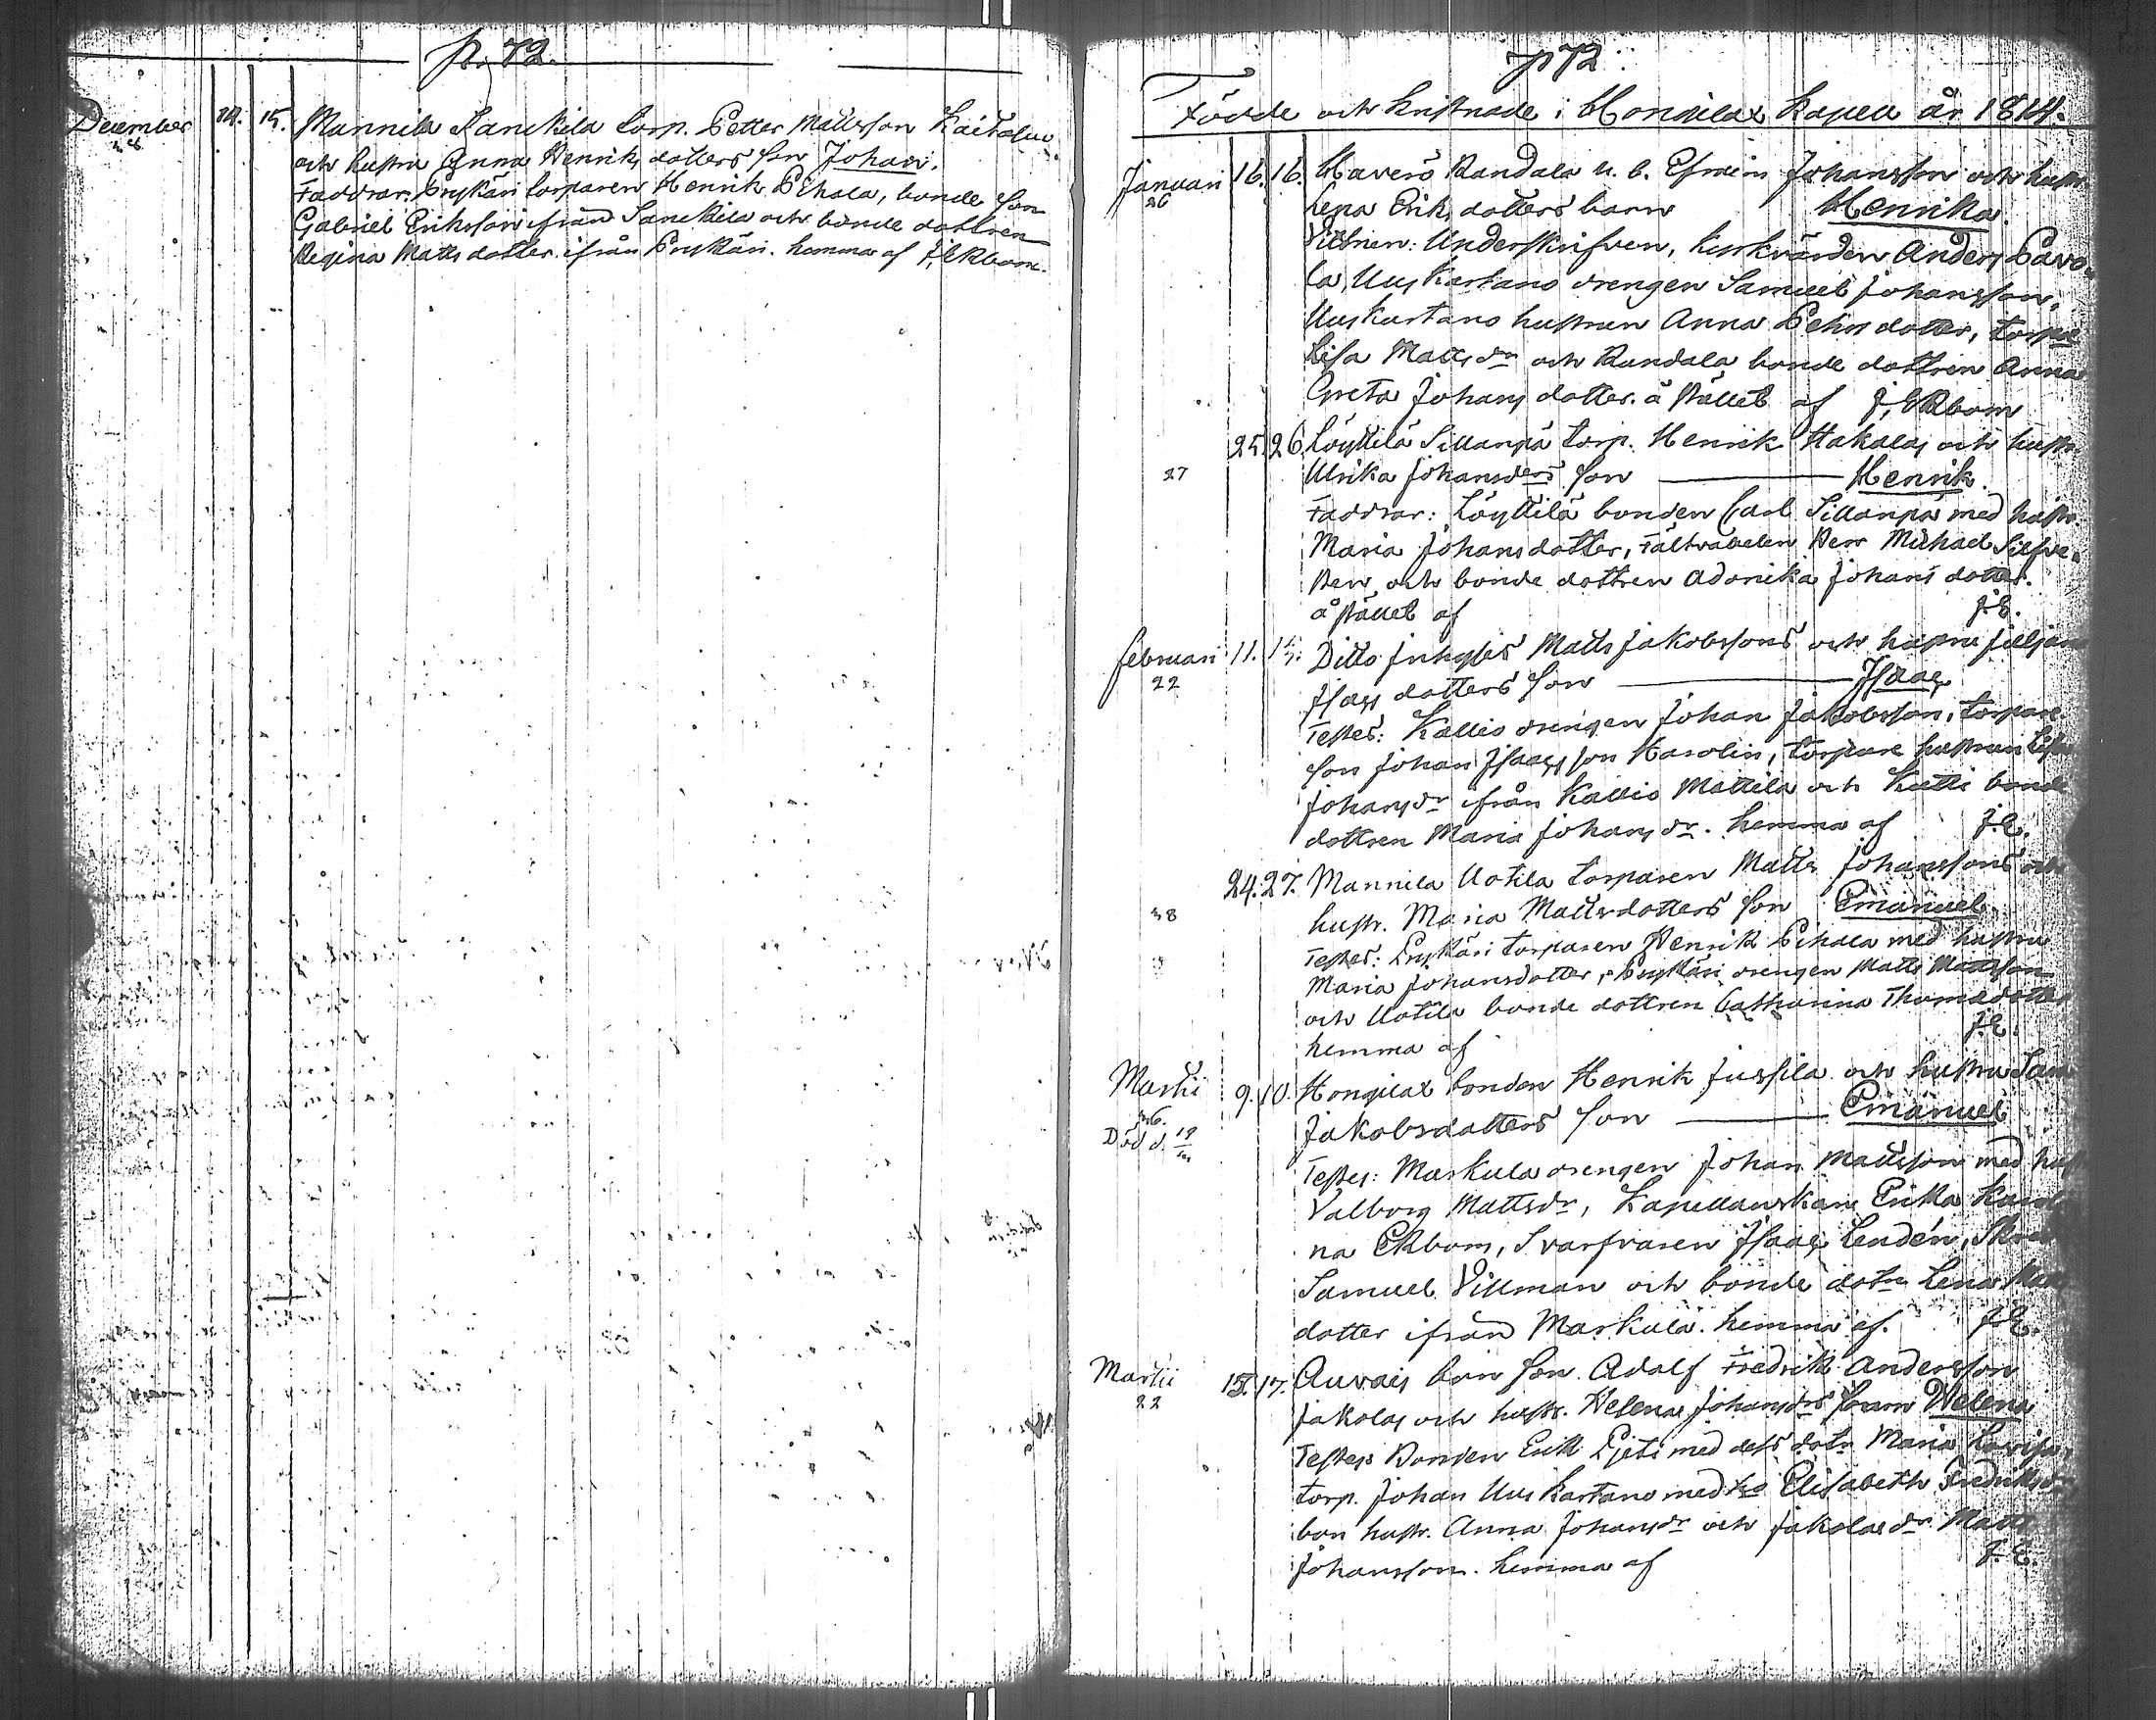 p. 72.
December 14. 15. Mannila Sanckila torp. Petter Mattsson
och hustru Anna Henriks dotters son Johan.
Faddrar. Pryckäri torparen Henrik Pihala, bonde son
Gabriel Eriksson ifrån Sanckila och bonde dottren
Regina Matts dotter ifrån Pryckäri. hemma af J. Ekbom.
p 72
Födde och kristnade i Hongilax Kapell år 1814.
Januari 16. 16. Haverö Randala u. b. Efraim Johansson och hustr.
26 Lena Eriks dotters barn Henrika.
Vittnen: Underskrifven, kyrkvärden Anders Pavo
la, Uuskartano drengen Samuel Johansson,
Uuskartano hustrun Anna dotter,
Lisa Matts dr och Randala bonde dottren Anna
Greta Johans dotter. å stället af J. Ekbom
25. 26. Löyttilä Sillanpä torp. Henrik Hakalas och hustr.
27 Ulrika Johansdrs son Henrik.
Faddrar: Löyttilä bonden Carl Sillanpä med hustr.
Maria Johansdotter, Fältväbelen Herr Michael
och bonde dottren Adonika Johans dotter.
å stället af J. E.
Februari 11. Ditto Matts Jakobssons och hustru
22 Isacs dotters son Isaac
Testes: Kallio drengen Johan Jakobsson, torpare
son Johan Isaacsson Karolin, torpare hustrun
Johans dr ifrån Kallio Mattila och bonde
dottren Maria Johans dr. hemma af J. E.
24. 27. Mannila Uotila torparen Matts Johanssons och
38 hustr. Maria Mattsdotters son Emanuel.
Testes: Pryckäri torparen Henrik Pihala med hustru
Maria Johansdotter, Pryckäri drengen Matts Mattsson
och Uotila bonde dottren Catharina Thomædotter
hemma af J. E.
Martii 9. 10. Hongilax bonden Henrik Jussila och hustru
Jakobsdotters son Emanuel
Död d. 19
Testes: Markula drengen Johan Mattsson med
Valborg Mattsdr, Kapellanskan Erika
na Ekbom, Svarfvaren Isaac Lendén,
Samuel Villman och bonde dotn Lena
dotter ifrån Markula. hemma af. J. E.
Martii 15. 17. Auvais bon son Adolf Fredrik Andersson
22 Jakolas och hustr. Helena Johansdrs barn Helena
Testes Bonden Erik med dess dotr Maria
torp. Johan Uuskartano med Elisabeth Fredriksdr
bon hustr. Anna Johansdr och Jakolas dr.
Johansson. hemma af J. E.